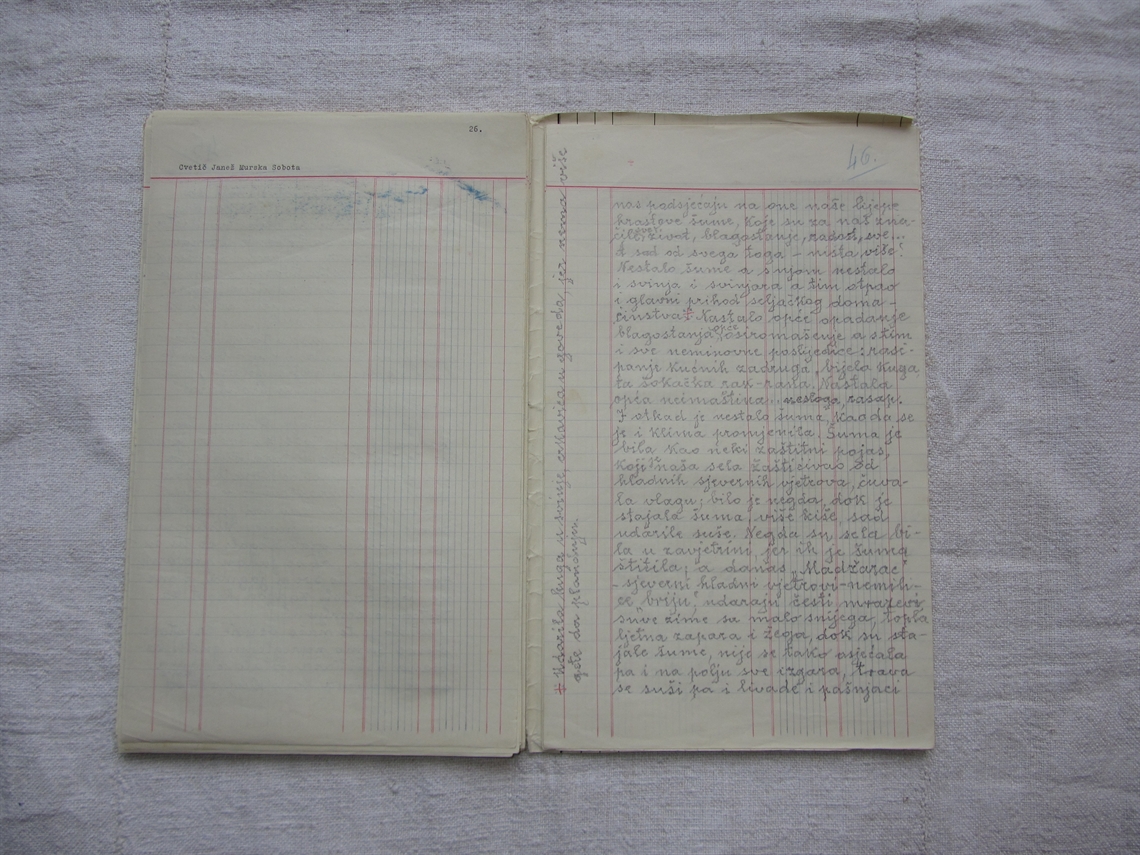 26.
Cvetič Janež Murska Sobota
46.
nas podsjećaju na one naše lijepe
hrastove šume, koje su za nas zna-
čile život, blagostanje, radost, sve...
A sad od svega toga - ništa više!
Nestalo šume a s njom nestalo
i svinja i svinjara a tim otpao
i glavni prihod seljačkog doma-
ćinstva. Nastalo opće opadanje
blagostanja, osiromašenje a s tim
i sve neminovne posljedice: rasi-
panje kućnih zadruga, bijela kuga
ta šokačka rak-rasla. Nastala
opća neimaština nesloga, rasap.
I otkad je nestalo šuma, kadda se
je i klima promjenila. Šuma je
bila kao neki zaštitni pojas,
koji naša sela zaštićivao od
hladnih sjevernih vjetrova, čuva-
la vlagu; bilo je negda, dok je
stajala šuma, više kiše, sad
udarile suše. Negda su sela bi-
la u zavjetrini, jer ih je šuma
štitila; a danas „Madžarac"
- sjeverni hladni vjetrovi - nemih-
ce briju, udaraju česti mrazevi
suve zime sa malo snijega, topla
ljetna zapara i žega, dok su sta-
jale šume, nije se tako osjećala
pa i na polju sve izgara, trava
se suši pa i livade i pašnjaci
+ Udarila kuga u svinje, crkavica u goveda, jer nema više
gdje da planduju.